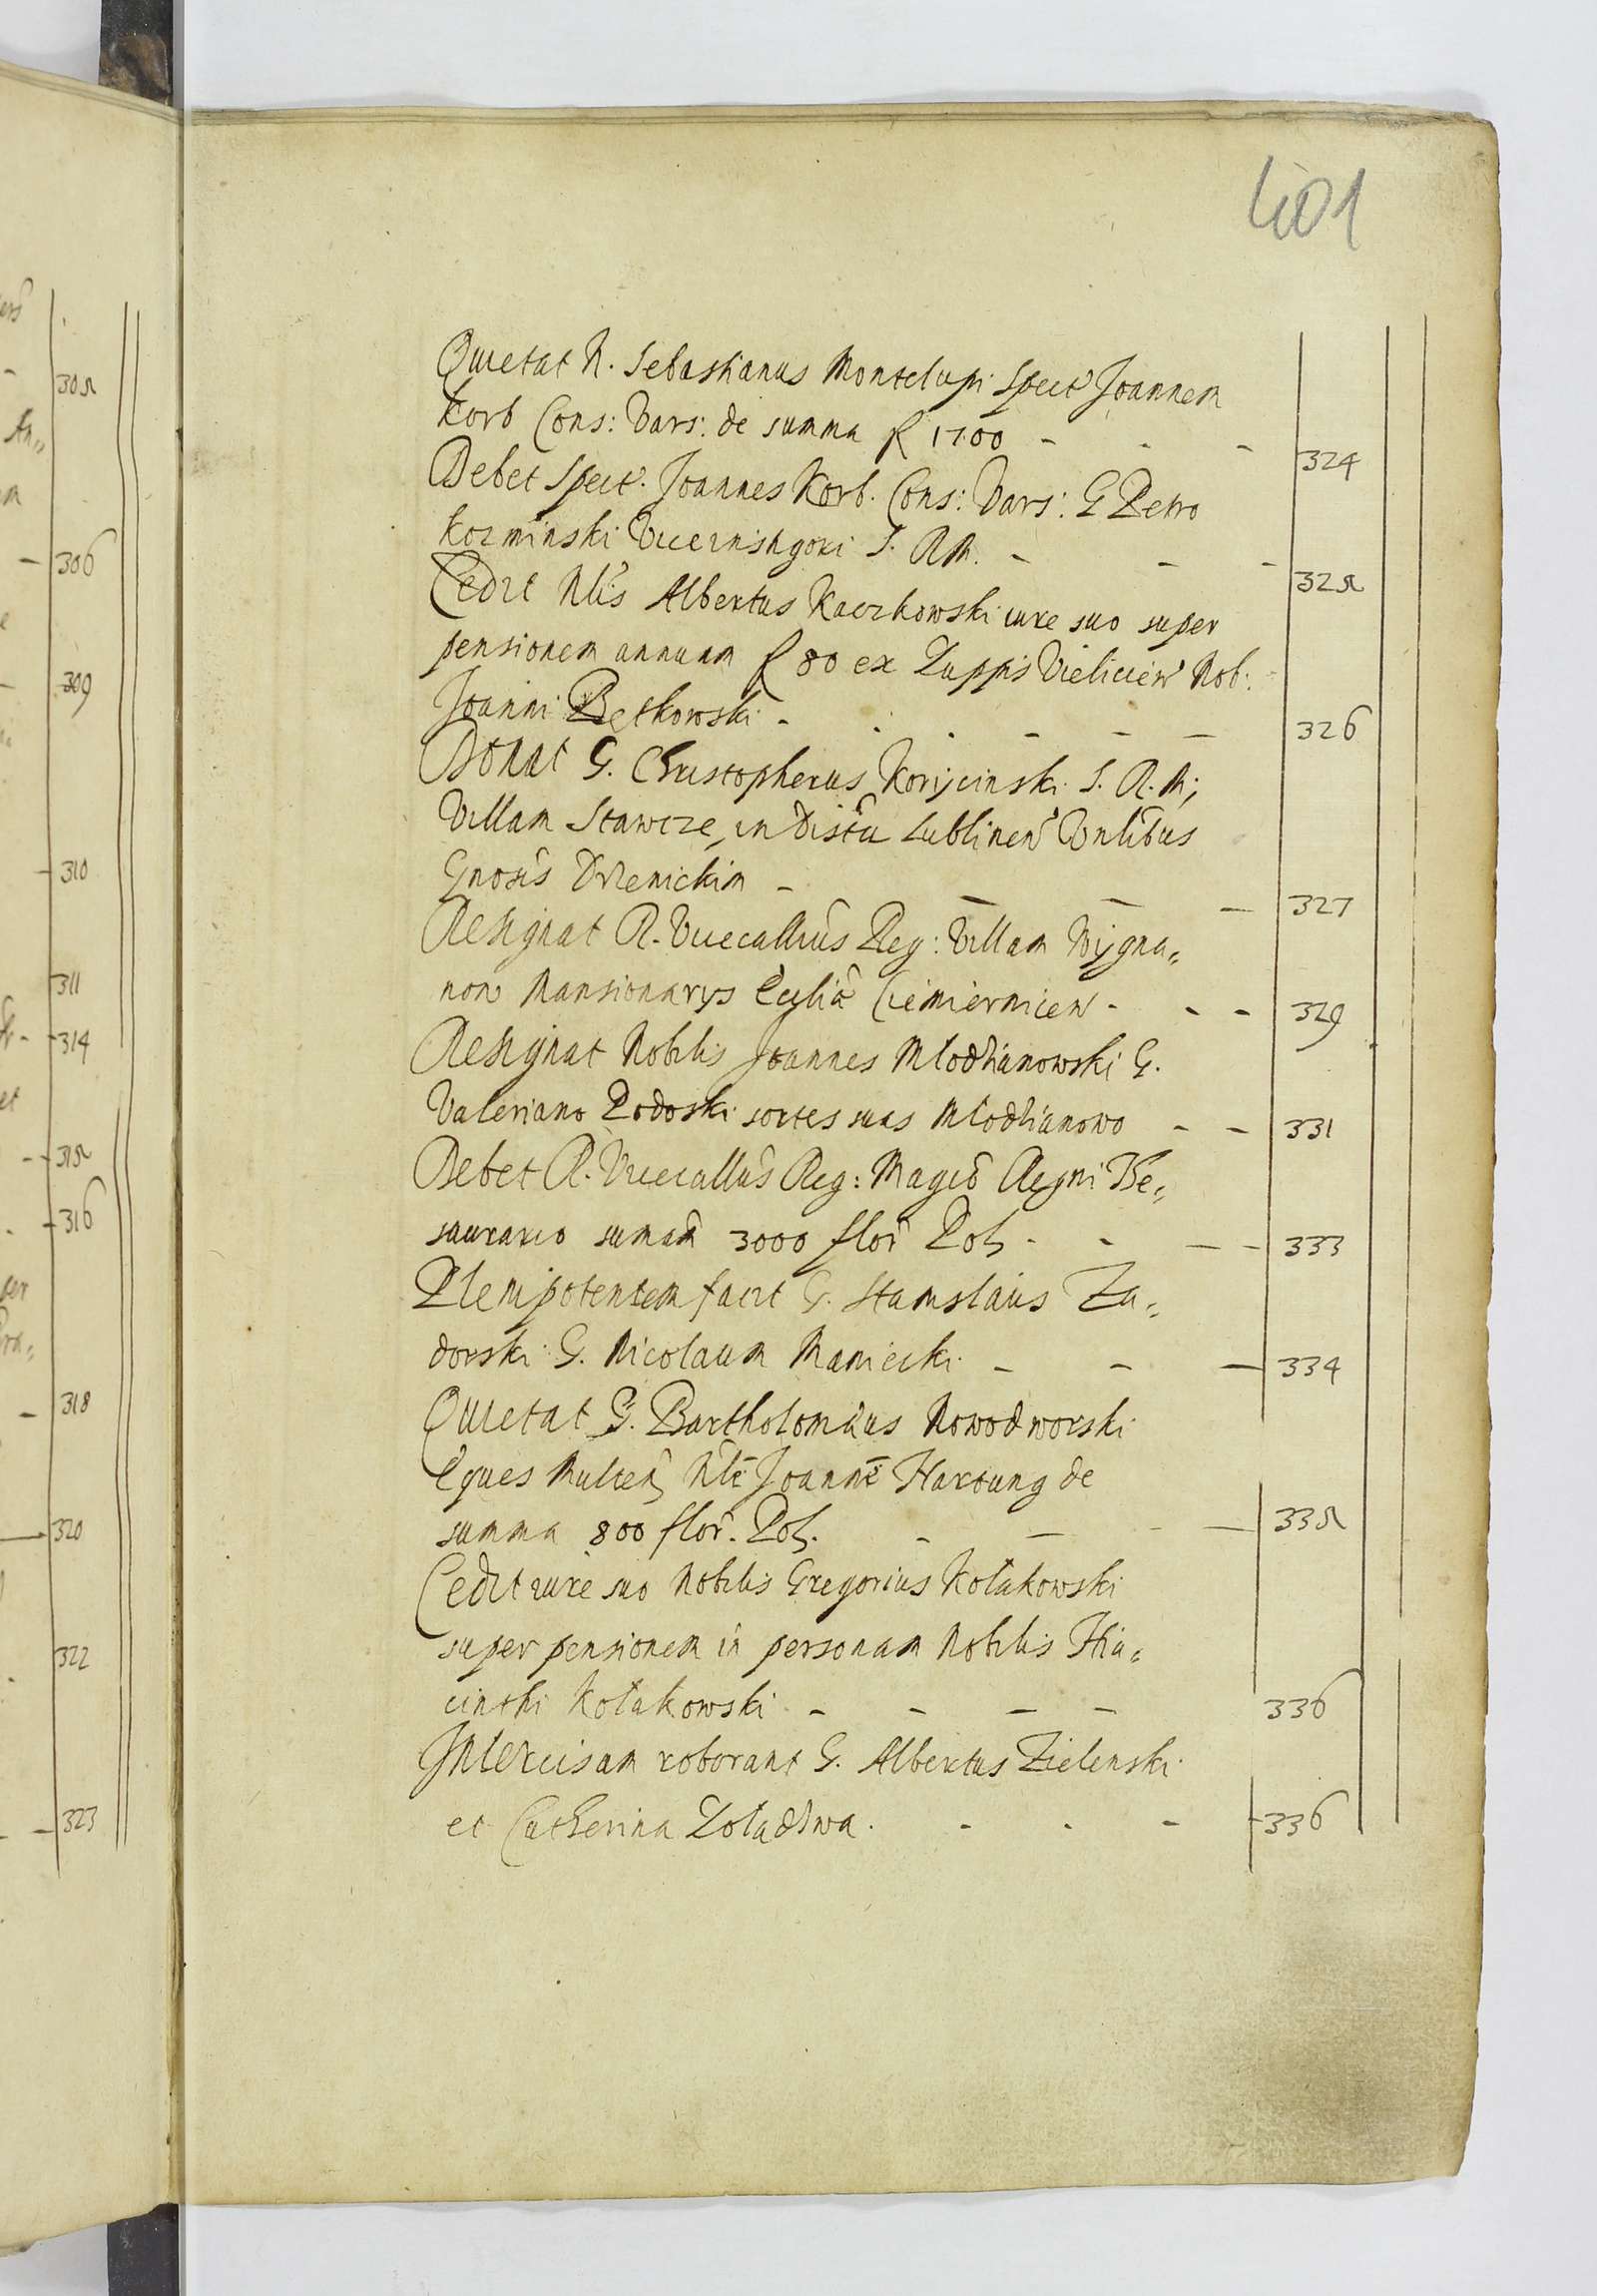 305
An„
306
309
310
311
314
et
315
316
318
320
322
323
401
Quietat N. Sebastianus Montelupi Spect Joannem
Korb Cons: Vars: de summa f 1700 - - - 324
Debet Spect. Joannes Korb. Cons: Vars: G Petro
Kozminski Vicernstgori S. R M. - - - 325
Cedit Nlis Albertus Kaczkowski iure suo super
pensionem annuam f 80 ex Zuppis Vielicien Nob:
Joanni Bętkowski - - - - - - 326
Donat G. Christophorus Korijcinski S. R. M;
Villam Stawcze, in distu Lublinen
Gnosis Drzenickim - - - - 327
Resignat R. Vicecallius Reg: Villam Wijgna„
now Mansionarys Ecclia Ciemiernicen - - - 329
Resignat Nobilis Joannes Mlodzianowski G.
Valeriano Podoski sortes suas Mlodzianowo - - 331
Debet R. Vicecallus Reg: Magco Regni The„
saurario sumam 3000 flor Pol - - - - 333
Plenipotentem facit G. Stanislaus Za„
dorski G. Nicolaum Maniecki - - - 334
Quietat G. Bartholomæus Nowodworski
Eques Multen Nle Joanne Hartung de
summa 800 flor. Pol. - - - - 335
Cedit iure suo Nobilis Gregorius Kołakowski
super pensionem in personam Nobilis Hia„
cinthi Kołakowski - - - - 336
Intercisam roborant G. Albertus Zielenski
et Catherina - - - 336